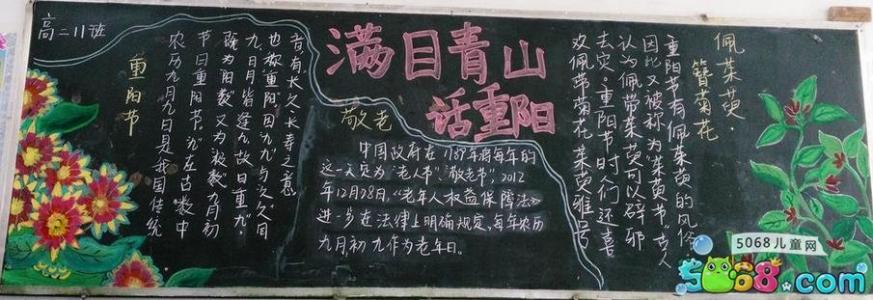 高二11班
满目青山
话重阳
重阳节
农历九月九日是我国传统
节日重阳节,"九"在古数中
既为"阳数"又为"极数"九月初
九,日月皆逢九故曰"重九"
也称"重阳"因九九与久久同
音有长久长寿之意
敬老
中国政府在1989年将每年的
这一天定为"老人节""敬老节",2012
年12月28日,《老年人权益保障法》
进一步在法律上明确规定,每年农历
九月初九作为老年日。
佩茱萸·
簪菊花
重阳节有佩茱萸的风俗
因此又被称为"茱萸节"古人
认为佩带茱萸可以辟邪
去灾。重阳节时人们还喜
欢佩带菊花茱萸雅号
5068儿童网
5068.com